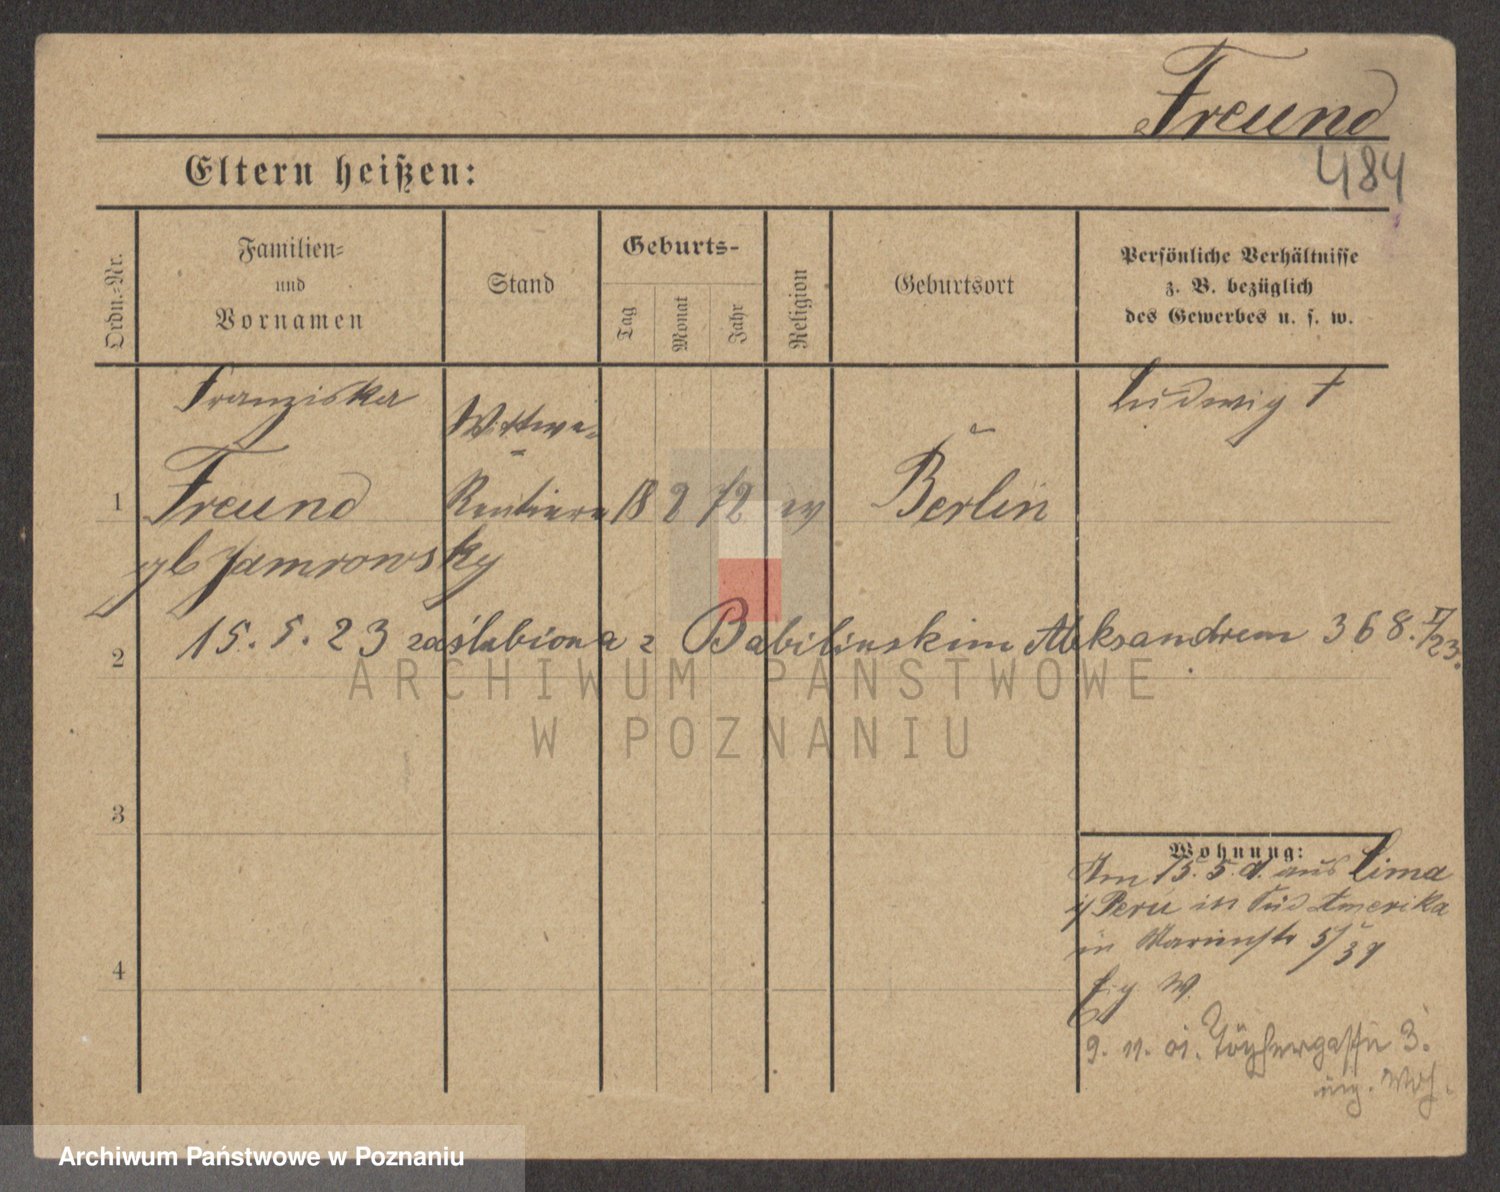 Freund
484
Eltern heißen:
Ordn.-Nr.
Familien-
und
Vornamen
Stand
Geburts-
Tag
Monat
Jahr
Religion
Geburtsort
Persönliche Verhältnisse
z. B. bezüglich
des Gewerbes u. s. w.
Franziska
Ludwig †
Wittwe
1 Freund Rentiere 18 2 72 ev Berlin
gb Jamrowsky
2 15. 5. 23 zaślubiona z Babilinskim Aleksandrem 368. I/23.
ARCHIWUM PAŃSTWOWE
W POZNANIU
3
Wohnung:
Am 15. 5. a. aus Lima
i/ Peru in Süd Amerika
in Marienstr
4
Eig W.
9. 11. 01. Töpfergasse 3.
eig. Woh.
Archiwum Państwowe w Poznaniu